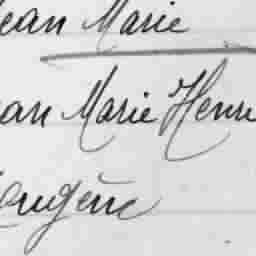 Jean Marie
Jean Marie Henri
Eugène